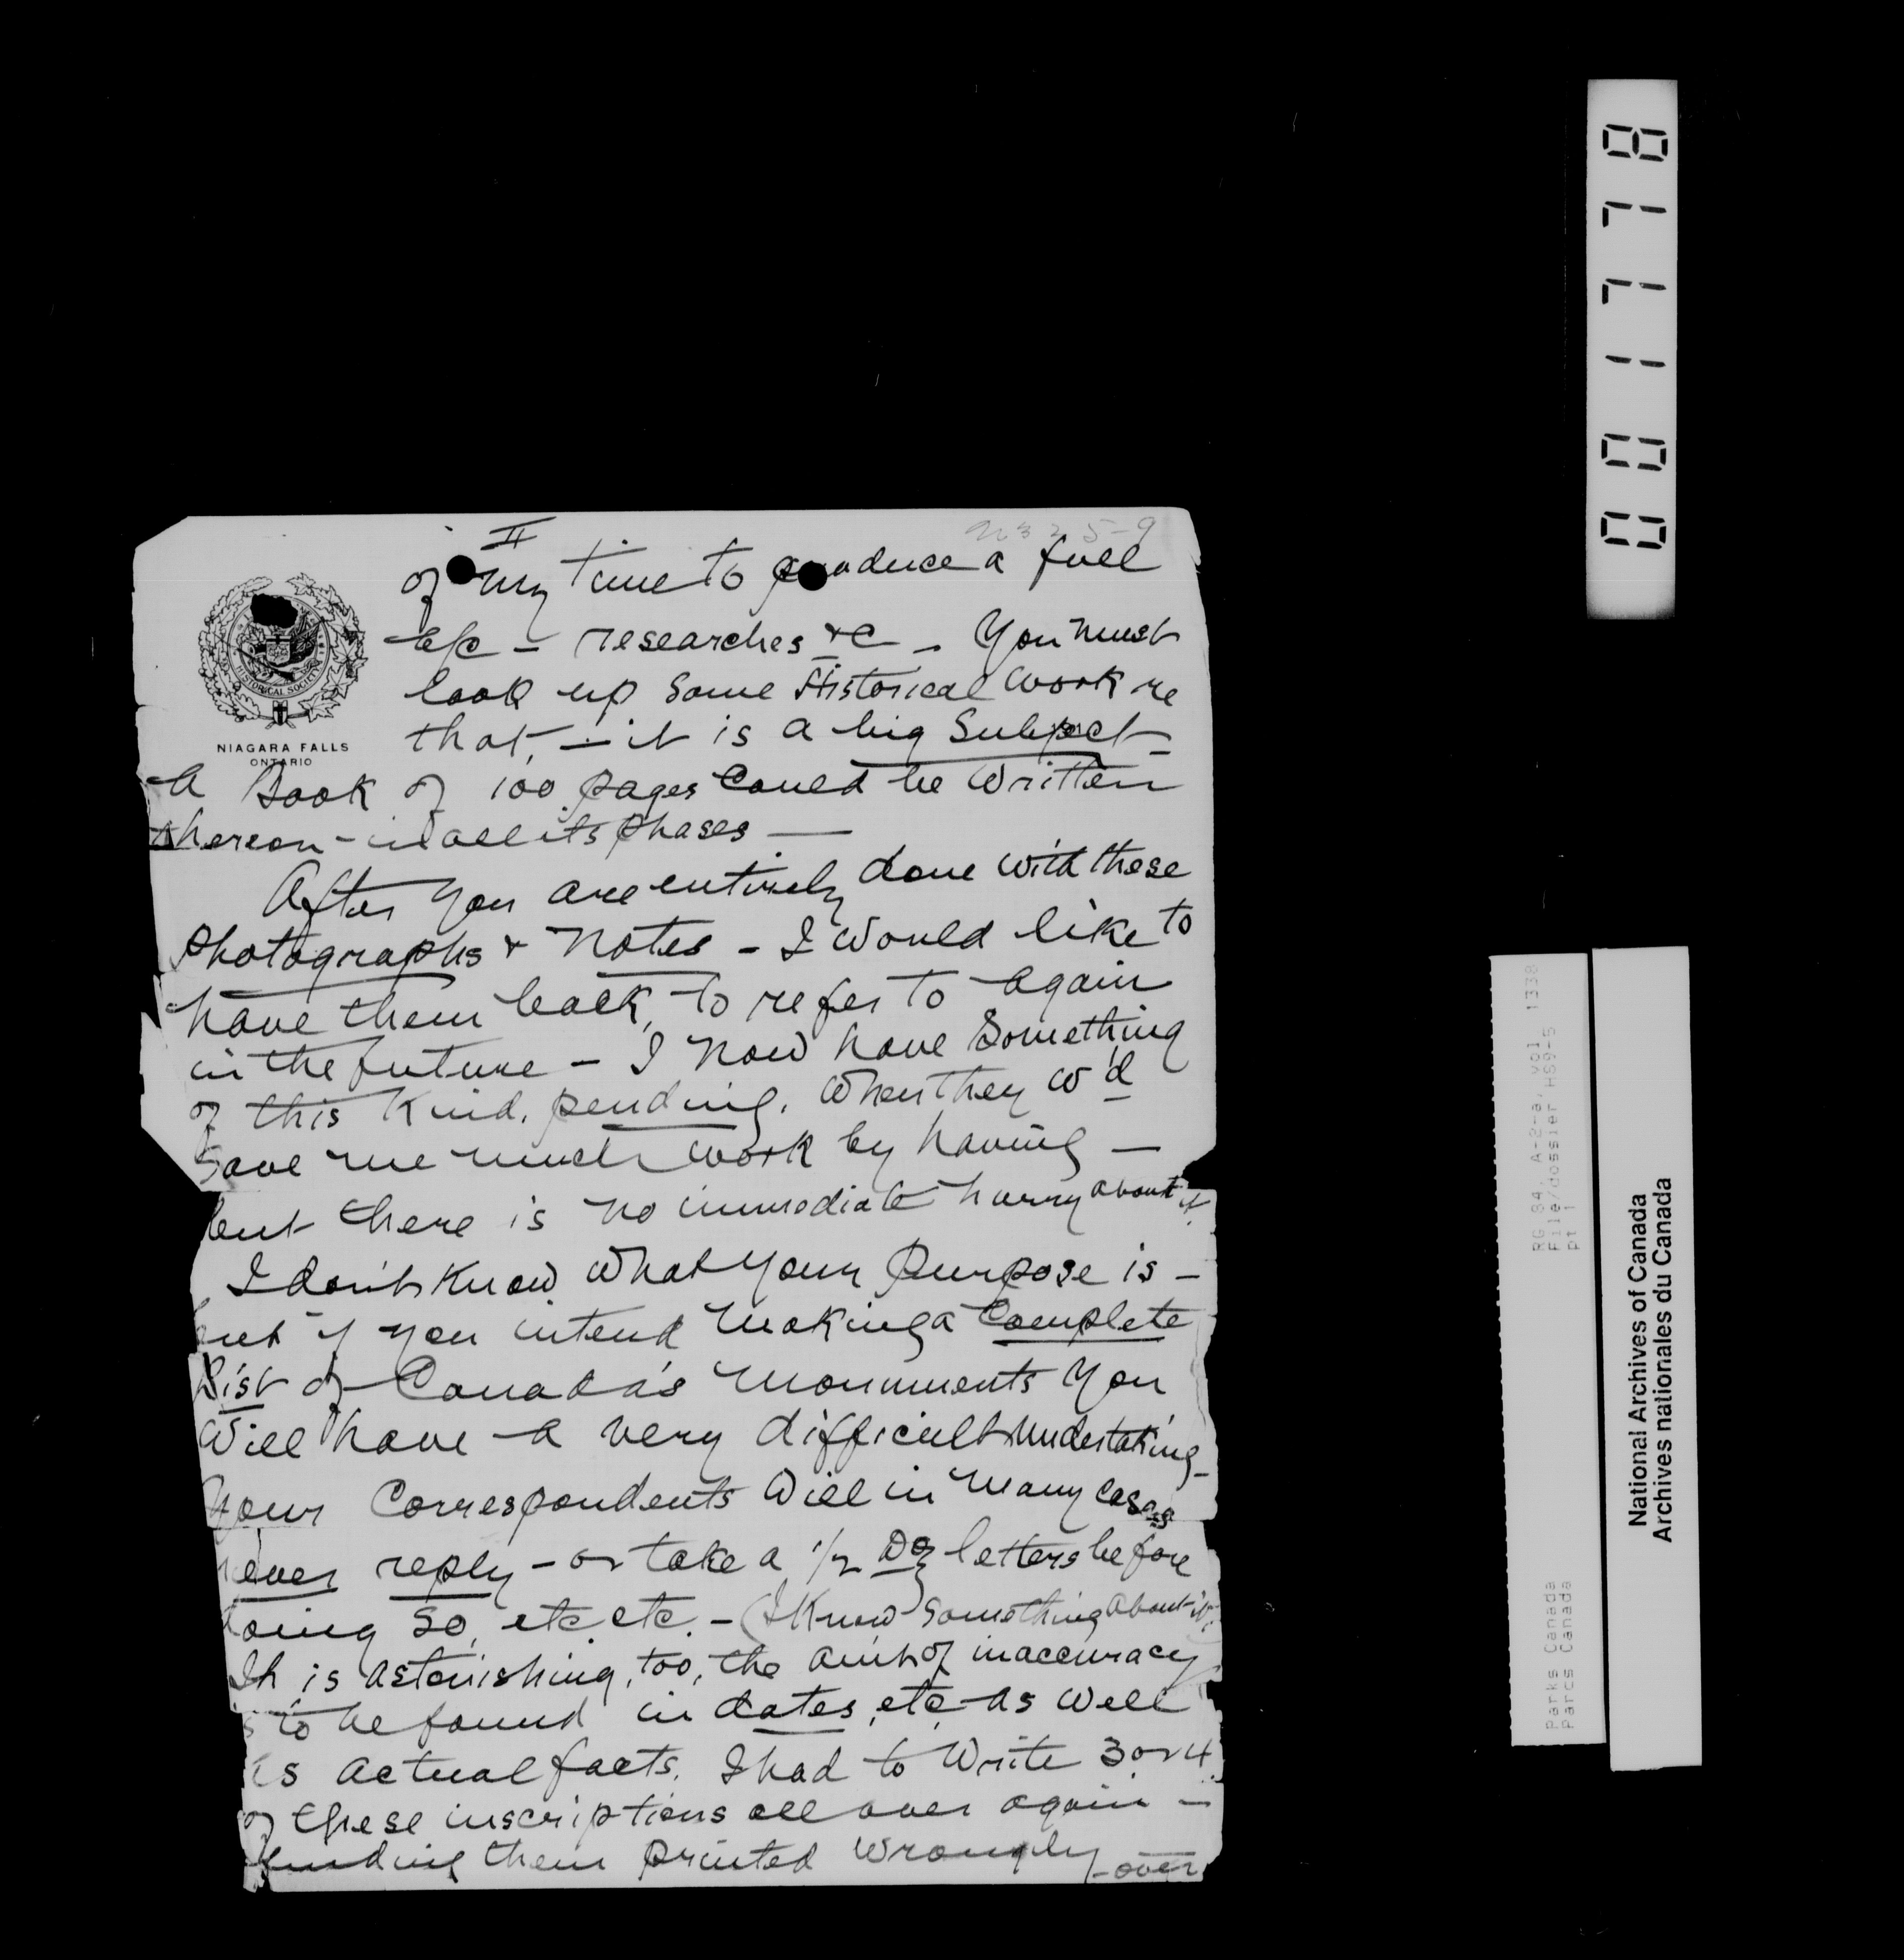 II
of my time to produce a full
a/c - researches &c - You must
look up some Historical work re
that, - it is a big Subject -
A Book of 100 pages could be written
thereon - in all its phases -
After you are entirely done with these
Photographs & notes - I would like to
have them back, to refer to again
in the future - I now have something
of this kind, pending, when they w'd
save me much work by having -
but there is no immediate hurry about it.
I don't know what your purpose is -
but if you intend making a complete
List of Canada's monuments you
will have a very difficult undertaking -
Your correspondents will in many cases
never reply - or take a 1/2 Doz letters before
doing so, etc etc. - (I know something about it.
It is astonishing, too, the am't of inaccuracy
s to be found in dates, etc, as well
as actual facts. I had to write 3 or 4
of these inscriptions all over again -
finding them printed wrongly
- over
HISTORICAL SOCIETY
NIAGARA FALLS
ONTARIO
001778
RG 84, A-2-a, vol 1338
File/dossier HS9-5
pt 1
Parks Canada
Parcs Canada
National Archives of Canada
Archives nationales du Canada